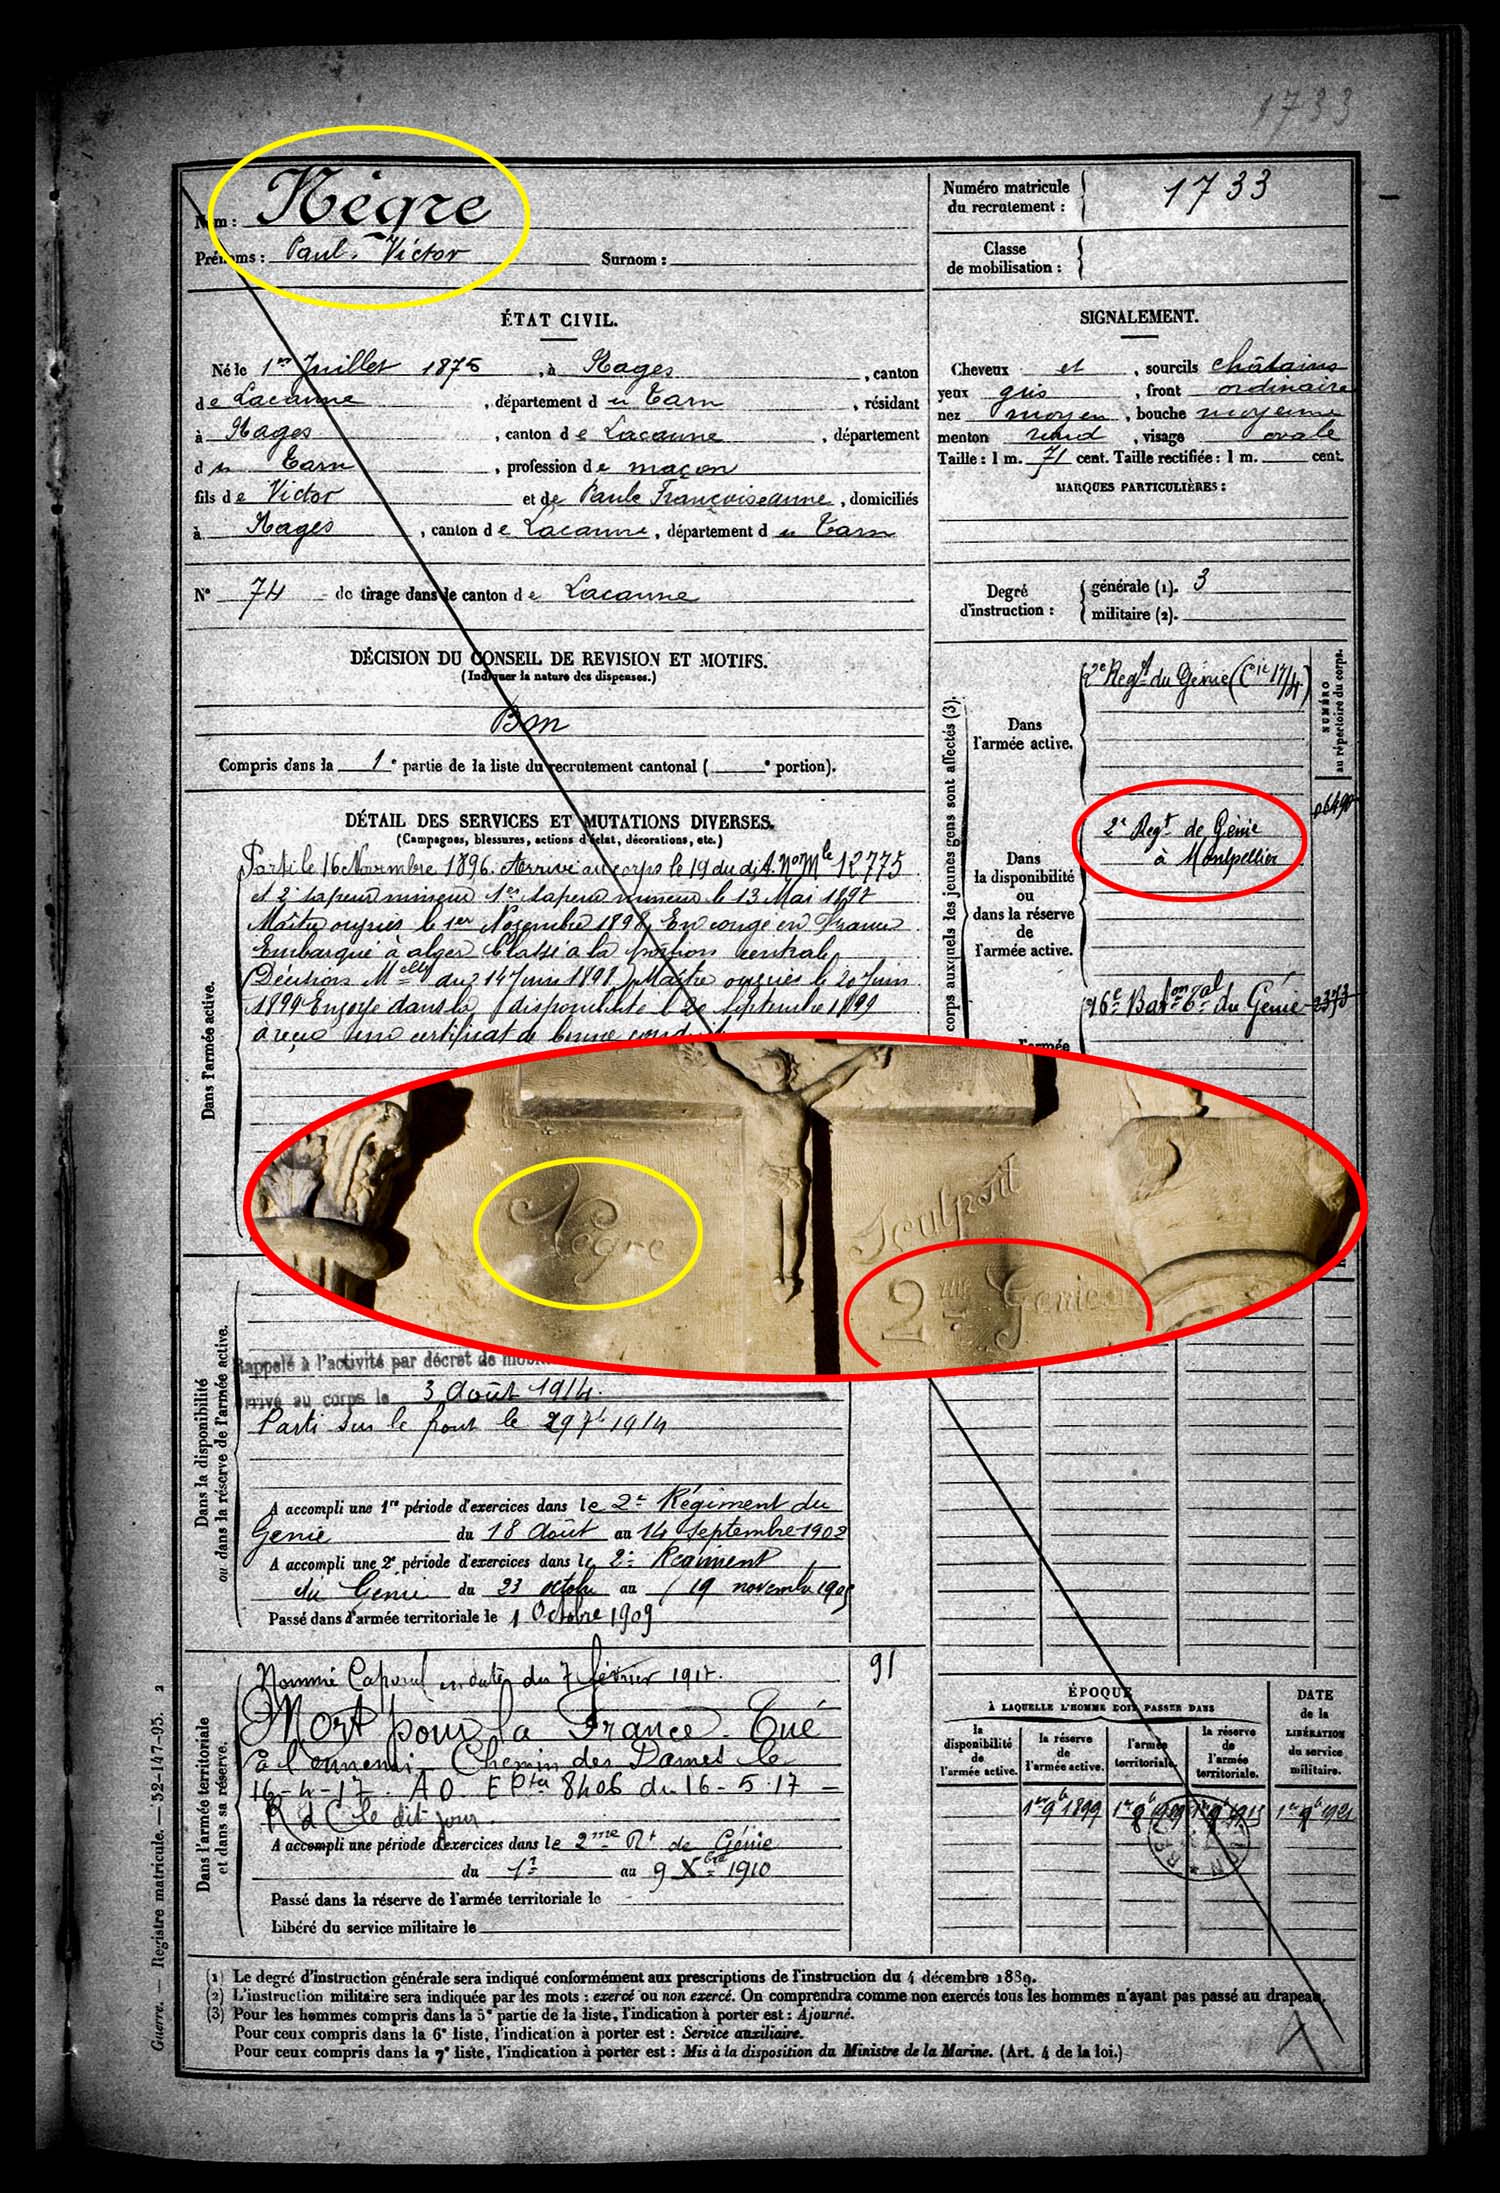 1733
Nom : Nègre
Prénoms : Paul. Victor Surnom :
Numéro matricule du recrutement : 1733
Classe de mobilisation :
ÉTAT CIVIL.
Né le 1er Juillet 1875, à Nages, canton
de Lacaune, département du Tarn, résidant
à Nages, canton de Lacaune, département
du Tarn, profession de maçon
fils de Victor et de Paule Françoise Anne, domiciliés
à Nages, canton de Lacaune, département du Tarn
N° 74 de tirage dans le canton de Lacaune
SIGNALEMENT.
Cheveux et, sourcils châtains
yeux gris, front ordinaire
nez moyen, bouche moyenne
menton rond, visage ovale
Taille : 1 m. 71 cent. Taille rectifiée : 1 m. cent.
MARQUES PARTICULIÈRES :
Degré d'instruction : générale (1). 3
militaire (2).
DÉCISION DU CONSEIL DE REVISION ET MOTIFS.
(Indiquer la nature des dispenses.)
Bon
Compris dans la 1e partie de la liste du recrutement cantonal ( e portion).
DÉTAIL DES SERVICES ET MUTATIONS DIVERSES.
(Campagnes, blessures, actions d'éclat, décorations, etc.)
Dans l'armée active.
Parti le 16 Novembre 1896. Arrivé au corps le 19 du dit. No Mle 12775
et 2e sapeur mineur 1er sapeur mineur le 13 Mai 1897
Maître ouvrier le 1er Novembre 1898. En congé en France
Embarqué à alger Classé à la portion centrale
(Décision Mlle du 14 Juin 1898) Maître ouvrier le 20 Juin
1899 Envoyé dans la disponibilité le 20 Septembre 1899
a reçu un certificat de bonne conduite
corps auxquels les jeunes gens sont affectés (3).
NUMÉRO au répertoire du corps.
Dans l'armée active.
2e Regt du Génie (Cie 17/4)
Dans la disponibilité ou dans la réserve de l'armée active.
2e Regt de Génie
à Montpellier
16e Baton Tal du Génie 2373
l'armée
Nègre
Sculpsit
2me Genie
Dans la disponibilité ou dans la réserve de l'armée active.
Rappelé à l'activité par décret de
Arrivé au corps le 3 Août 1914.
Parti sur le front le 29 7b 1914
A accompli une 1re période d'exercices dans le 2e Régiment du
Génie du 18 Août au 14 Septembre 1902
A accompli une 2e période d'exercices dans le 2e Régiment
du Génie du 23 octobre au 19 novembre 1905
Passé dans l'armée territoriale le 1 Octobre 1909
Dans l'armée territoriale et dans sa réserve.
Nommé Caporal en date du 7 février 1917.
91
Mort pour la France. Tué
à l'ennemi Chemin des Dames le
16-4-17. AD. EPter 8406 du 16-5-17
R d C le dit jour.
A accompli une période d'exercices dans le 2me Rt de Génie
du 1er au 9 Xbre 1910
Passé dans la réserve de l'armée territoriale le
Libéré du service militaire le
ÉPOQUE
À LAQUELLE L'HOMME DOIT PASSER DANS
la disponibilité de l'armée active.
la réserve de l'armée active.
l'armée territoriale.
la réserve de l'armée territoriale.
DATE de la LIBÉRATION du service militaire.
1er 9b 1899
(1) Le degré d'instruction générale sera indiqué conformément aux prescriptions de l'instruction du 4 décembre 1889.
(2) L'instruction militaire sera indiquée par les mots : exercé ou non exercé. On comprendra comme non exercés tous les hommes n'ayant pas passé au drapeau.
(3) Pour les hommes compris dans la 5e partie de la liste, l'indication à porter est : Ajourné.
Pour ceux compris dans la 6e liste, l'indication à porter est : Service auxiliaire.
Pour ceux compris dans la 7e liste, l'indication à porter est : Mis à la disposition du Ministre de la Marine. (Art. 4 de la loi.)
Guerre. — Registre matricule. — 52-147-95. 2